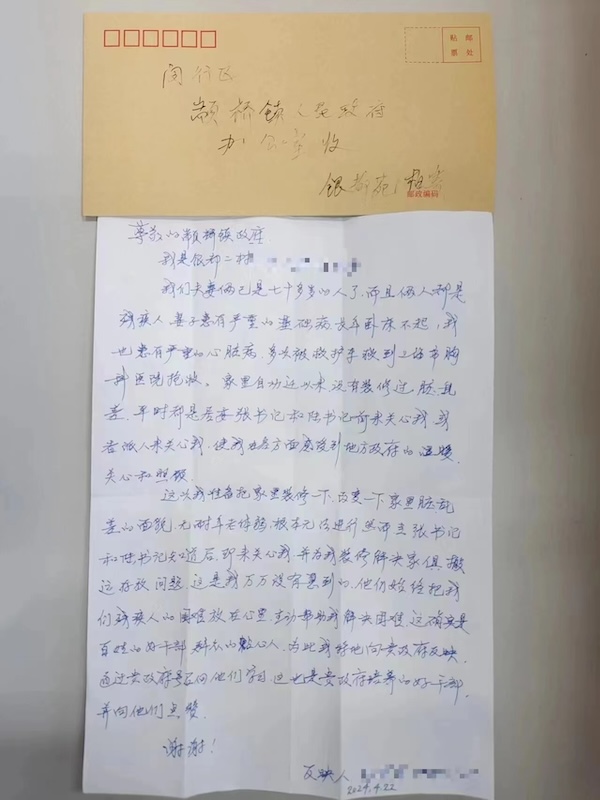 贴 邮
票 处
闵行区
颛桥镇人民政府
办公室收
银都苑
邮政编码
尊敬的颛桥镇政府
我是银都二村
我们夫妻俩已是七十多岁的人了，而且俩人都是
残疾人，妻子患有严重的基础病长年卧床不起，我
也患有严重的心脏病，多次被救护车救到上海市胸
科医院抢救。家里自动迁以来，没有装修过，脏乱
差，平时都是居委张书记和陆书记前来关心我，或
者派人来关心我，使我在方面感受到地方政府的温暖，
关心和照顾。
这次我准备把家里装修一下，改变一下家里脏乱
差的面貌，无耐年老体弱，根本无法进行，居委张书记
和陆书记知道后，即来关心我并为我装修解决家俱搬
运存放问题，这是我万万没有想到的，他们始终把我
们残疾人的困难放在心里，主动帮助我解决困难，这确实是
百姓的好干部，群众的贴心人，为此我特地向贵政府反映，
通过贵政府号召向他们学习，这也是贵政府培养的好干部，
并向他们点赞。
谢谢！
反映人
2024.4.22